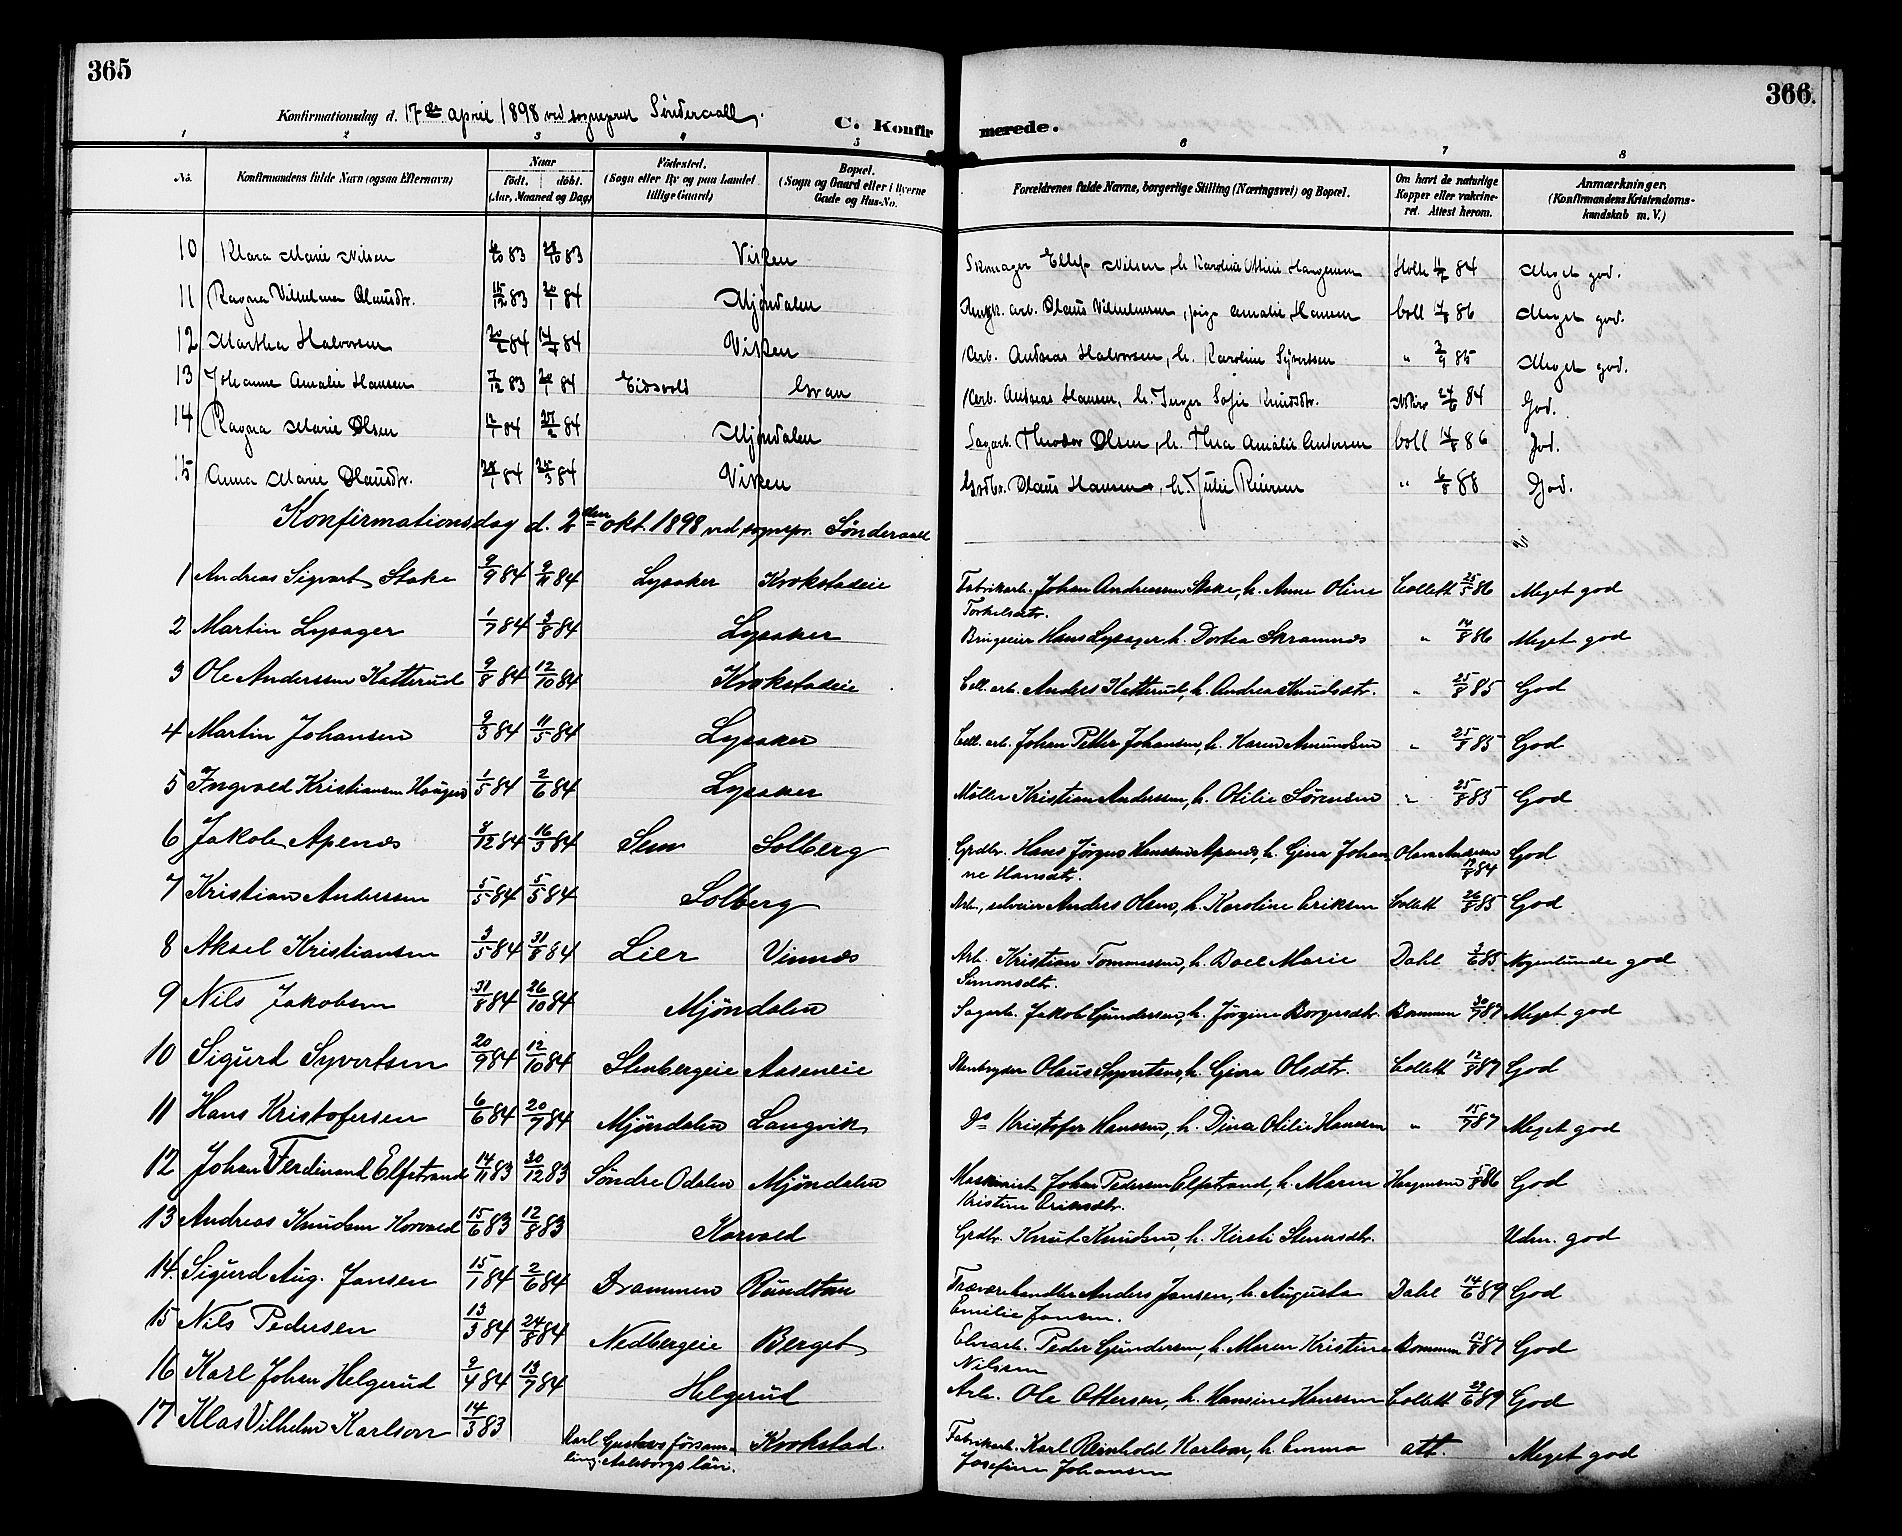 365
366.
Konfirmationsdag d. 17de april 1898 ved sognepræst Sönderaall.
C. Konfirmerede.
1 2 3 4 5 6 7 8
No. Konfirmandens fulde Navn (ogsaa Efternavn) Naar födt. döbt. (Aar, Maaned og Dag) Födested. (Sogn eller By og paa Landet tillige Gaard) Bopæl. (Sogn og Gaard eller i Byerne Gade og Hus-No. Forældrenes fulde Navne, borgerlige Stilling (Næringsvei) og Bopæl. Om havt de naturlige Kopper eller vakcineret. Attest herom. Anmærkninger. (Konfirmandens Kristendomskundskab m. V.)
10 Klara Marie Nilsen /10 83 28/10 83 Viken Skomager Ellef Nilsen, h. Karoline Othilie Holth 84 Meget god.
11 Ragna Vilhelmine Olausdtr. 15/12 83 20/1 84 Mjöndalen arb. Olaus Vilhelmsen, pige Amalie Hansen Coll 86 Meget god.
12 Martha Halvorsen 84 14/4 84 Viken Arb. Andreas Halvorsen, h. Karoline Syvertsen " 85 Meget god.
13 Johanne Amalie Hansen 7/12 83 20/1 84 Eidsvold Gran Arb. Andreas Hansen, h. Inger Sofie Knudsdtr. 84 God.
14 Ragna Marie Olsen 12/1 84 27/2 84 Mjöndalen Sagarb. Theodor Olsen, h. Thea Amalie Andersen Coll 14/8 86 God.
15 Anna Marie Olausdtr. 28/1 84 25/3 84 Viken Grdbr. Olaus Hansen, h. Julie Reiersen " 6/8 88 God.
Konfirmationsdag d. 2den okt. 1898 ved sognepr. Sönderaall
1 Andreas Sigvart Stake 9/9 84 9/11 84 Lysaker Krokstadeie Fabrikarb. Johan Andreassen Stake, h. Anne Oline Torkelsdtr. Collett 25/5 86 Meget god
2 Martin Lysager 1/7 84 3/8 84 Lysaker Brugseier Hans Lysager, h. Dortea Skramnæs " 14/8 86 Meget god
3 Ole Anderssen Katterud 9/8 84 12/10 84 Krokstadeie Cell. arb. Anders Katterud, h. Andrea Knudsdtr. " 25/8 85 God
4 Martin Johansen 9/3 84 11/5 84 Lysaker Cell. arb. Johan Petter Johansen, h. Karen Amundsen " 25/8 85 God
5 Ingvald Kristiansen Haugen 1/5 84 2/6 84 Lysaker Möller Kristian Anderssen, h. Otilie Sörensen " 25/8 85 God
6 Jakob Apenæs 3/12 84 16/3 84 Sem Solberg Grdbr. Hans Jörgen Hanssen Apenæs, h. Gina Johanne Hansdtr. Olava Andersen 17/8 84 God
7 Kristian Anderssen 5/5 84 5/5 84 Solberg Arb., selveier Anders Olsen, h. Karoline Eriksen Collett 26/8 85 God
8 Aksel Kristiansen 3/5 84 31/8 84 Lier Vinnæs Arb. Kristian Tommessen, h. Boel Marie Simonsdtr. Dahl 3/6 85 Nogenlunde god
9 Nils Jakobsen 31/8 84 26/10 84 Mjöndalen Sagarb. Jakob Gundersen, h. Jörgine Borgersdtr. Bommen 30/7 87 Meget god
10 Sigurd Syvertsen 20/9 84 12/10 84 Stenbergeie Aaseneie Stenbryder Olaus Syvertsen, h. Gina Olsdtr. Collett 12/8 87 God
11 Hans Kristofersen 6/6 84 20/7 84 Mjöndalen Langvik Do Kristofer Hanssen, h. Dina Otilie Hanssen " 15/7 87 Meget god
12 Johan Ferdinand Elfstrand 14/11 83 30/12 83 Söndre Odalen Mjöndalen Maskinist Johan Pedersen Elfstrand, h. Maren Kristine Eriksdtr. Haagensen 5/8 86 God
13 Andreas Knudsen Horvald 15/6 83 12/8 83 Korvald Grdbr. Knut Knudsen, h. Kirsti Stenersdtr. Udm. god
14. Sigurd Aug. Jansen 15/1 84 2/6 84 Drammen Rundtan Trævarehandler Anders Jansen, h. Augusta Emilie Jansen. Dahl 14/6 89 God
15 Nils Pedersen 13/3 84 24/8 84 Nedbergeie Berget Elvearb. Peder Gundersen, h. Maren Kristine Nilssen Bommen 13/8 87 God
16 Karl Johan Helgerud 2/4 84 13/7 84 Helgerud Arb. Ole Ottersen, h. Hansine Hanssen Collett 23/6 89 God
17 Klas Vilhelm Karlson 14/3 83 Karl Gustavs församling. Aalsborgs län. Krokstad. Fabrikarb. Karl Reinhold Karlson, h. Emma Josefine Johansen att. Meget god